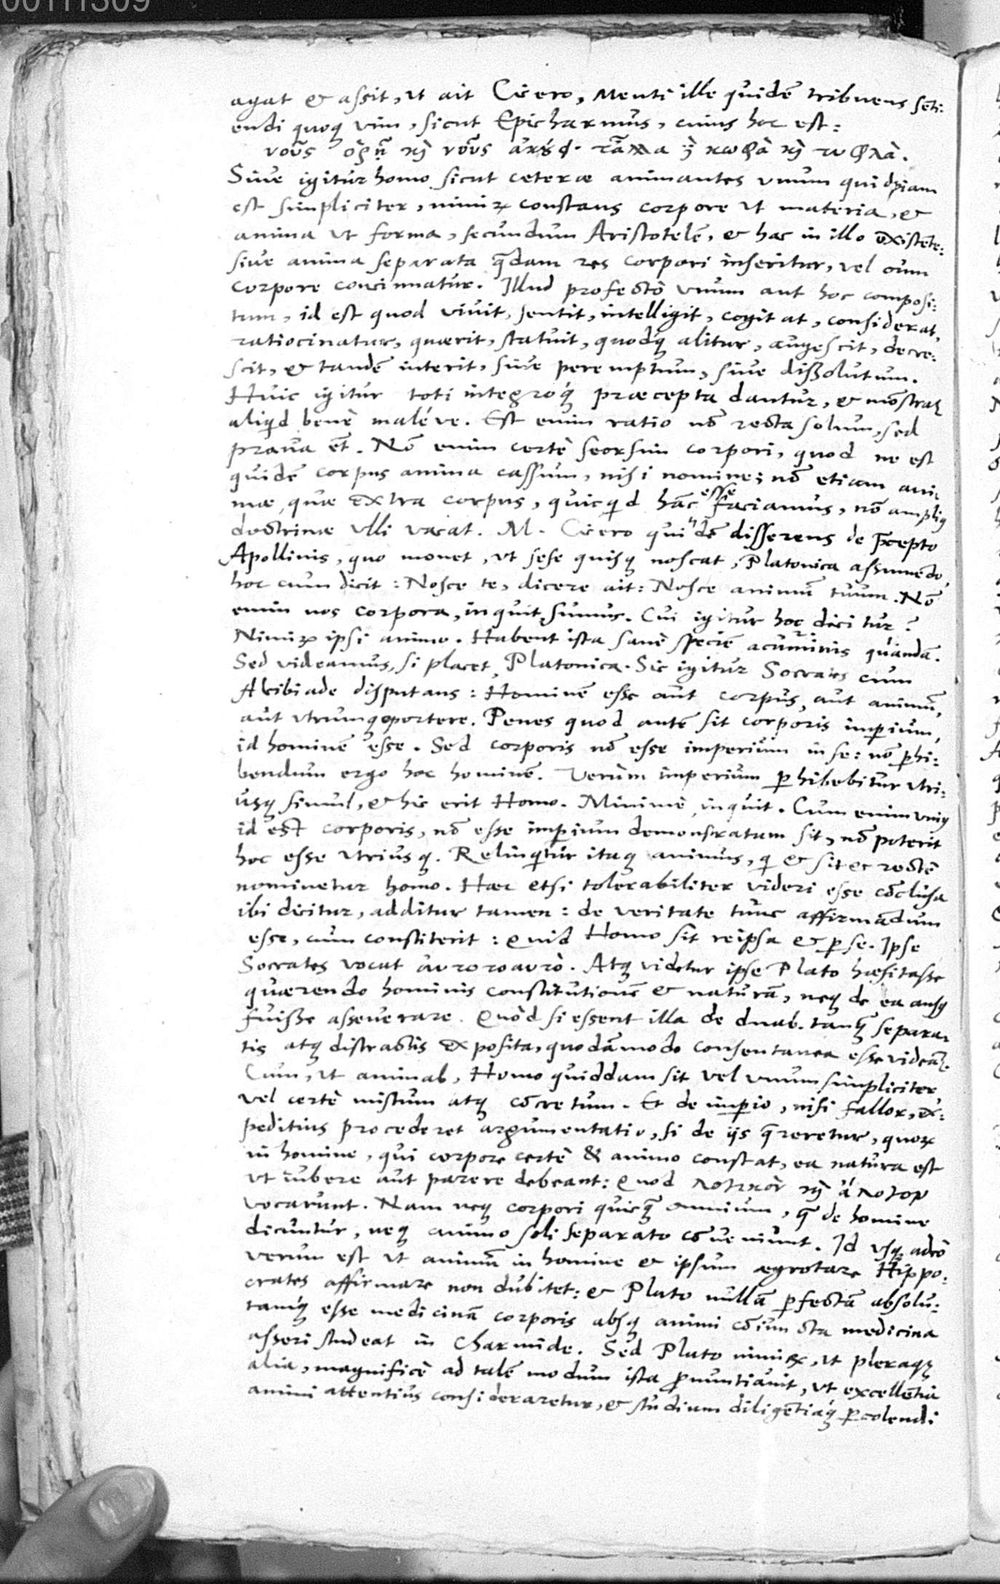 00111309
agat & assit, ut ait Cicero, Menti ille quidē tribuens sēti:
endi quoq; vim, sicut Epicharmus, cuius hoc est:
νοῦς ὁρῇ κὶ νοῦς ἀκούει· τἄλλα κωφὰ κὶ τυφλά.
Sive igitur homo sicut ceteræ animantes vnum quidpiam
est simpliciter, nimirū constans corpore ut materia, &
anima ut forma, secundum Aristotelē, & hac in illo existēte:
sive anima separata q̄dam res corpori inseritur, vel cum
corpore concinnatur. Illud profectò vnum aut hoc composi:
tum, id est quod vivit, sentit, intelligit, cogitat, considerat,
ratiocinatur, quærit, statuit, quodq́; alitur, augescit, decre:
scit, & tandē interit, sive peremptum, sive dissolutum.
Huic igitur toti integroq́; præcepta dantur, & mōstrat
aliqd benè maléve. Est enim ratio nō recta solum, sed
prava ēt. Nō enim certè seorsim corpori, quod ne est
quidē corpus anima cassum, nisi nomine; nō etiam ani:
mæ, quæ extra corpus, quicqd hāc esse faciamus, nō ampliꝰ
doctrinæ ulli vacat. M. Cicero quidē disserens de p̄cepto
Apollinis, quo monet, ut sese quisq; noscat, Platonica assumēdo,
hoc cum dicit: Nosce te, dicere ait: Nosce animū tuum. Nō
enim nos corpora, inquit, sumus. Cui igitur hoc dicitur?
Nimirū ipsi animo. Habent ista sanè speciē acuminis quandā.
Sed videamus, si placet, Platonica. Sic igitur Socrates cum
Alcibiade disputans: Hominē esse aut corpus, aut animū,
aut utrumq; oportere. Penes quod autē sit corporis imperium,
id hominē esse. Sed corporis nō esse imperium in se: nō p̱hi:
bendum ergo hoc hominē. Verùm imperium p̱hibebitur utri:
usq; simul, & hic erit Homo. Minimè, inquit. Cum enim vniꝰ
id est corporis, nō esse imp̱ium demonstratum sit, nō poterit
hoc esse utriusq;. Relinquitur itaq; animus, q̱ & sit & rectè
nominetur homo. Hæc etsi tolerabiliter videri esse cōclusa
ibi dicitur, additur tamen: de veritate tunc affirmādum
esse, cum constiterit: Quid Homo sit reipsa & p̱ se. Ipse
Socrates vocat αὐτοτοαυτό. Atq; videtur ipse Plato hæsitasse
quærendo hominis constitutionē & naturā, neq; de ea ausꝰ
fuisse asseverare. Quòd si essent illa de duab. tanq̄ separa:
tis atq; distractis exposita, quodāmodo consentanea esse videāt.
Cum, ut animab, Homo quiddam sit vel vnum simpliciter,
vel certè mistum atq; cōcretum. Et de imp̱io, nisi fallor, ex:
peditius procederet argumentatio, si de ijs q̄reretur, quorū
in homine, qui corpore certè & animo constat, ea natura est
ut iubere aut parere debeant: Quod λογικὸν κὶ ἄλογον
vocarunt. Nam neq; corpori quicq̄ omnium, q̄ de homine
dicuntur, neq; animo soli separato cōveniunt. Id usq; adeò
verum est ut animū in homine & ipsum ægrotare Hippo:
crates affirmare non dubitet: & Plato nullā p̱fectā absolu:
tamq́; esse medicinā corporis absq; animi cōiuncta medicina
asseri studeat in Charmide. Sed Plato nimirū, ut pleraq;
alia, magnificè ad talē modum ista p̱nuntiavit, ut excellētia
animi attentius consideraretur, & studium diligētiaq́; p̱colendi